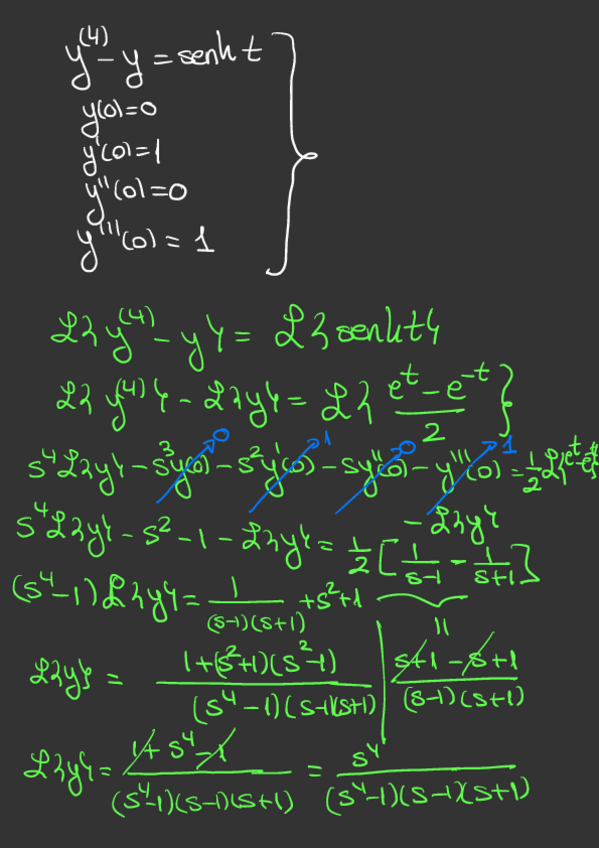 y⁽⁴⁾ - y = senh t
y(0)=0
y'(0)=1
y''(0)=0
y'''(0) = 1
ℒ{y⁽⁴⁾ - y} = ℒ{senht}
ℒ{y⁽⁴⁾} - ℒ{y} = ℒ{(e^t - e^-t)/2}
s⁴ℒ{y} - s³y(0) - s²y'(0) - sy''(0) - y'''(0) = 1/2 ℒ{e^t - e^-t}
0 1 0 1
- ℒ{y}
s⁴ℒ{y} - s² - 1 - ℒ{y} = 1/2 [1/(s-1) - 1/(s+1)]
(s⁴-1)ℒ{y} = 1/((s-1)(s+1)) + s²+1
ℒ{y} = (1+(s²+1)(s²-1))/((s⁴-1)(s-1)(s+1)) | = (s+1-s+1)/((s-1)(s+1))
ℒ{y} = (1+s⁴-1)/((s⁴-1)(s-1)(s+1)) = s⁴/((s⁴-1)(s-1)(s+1))